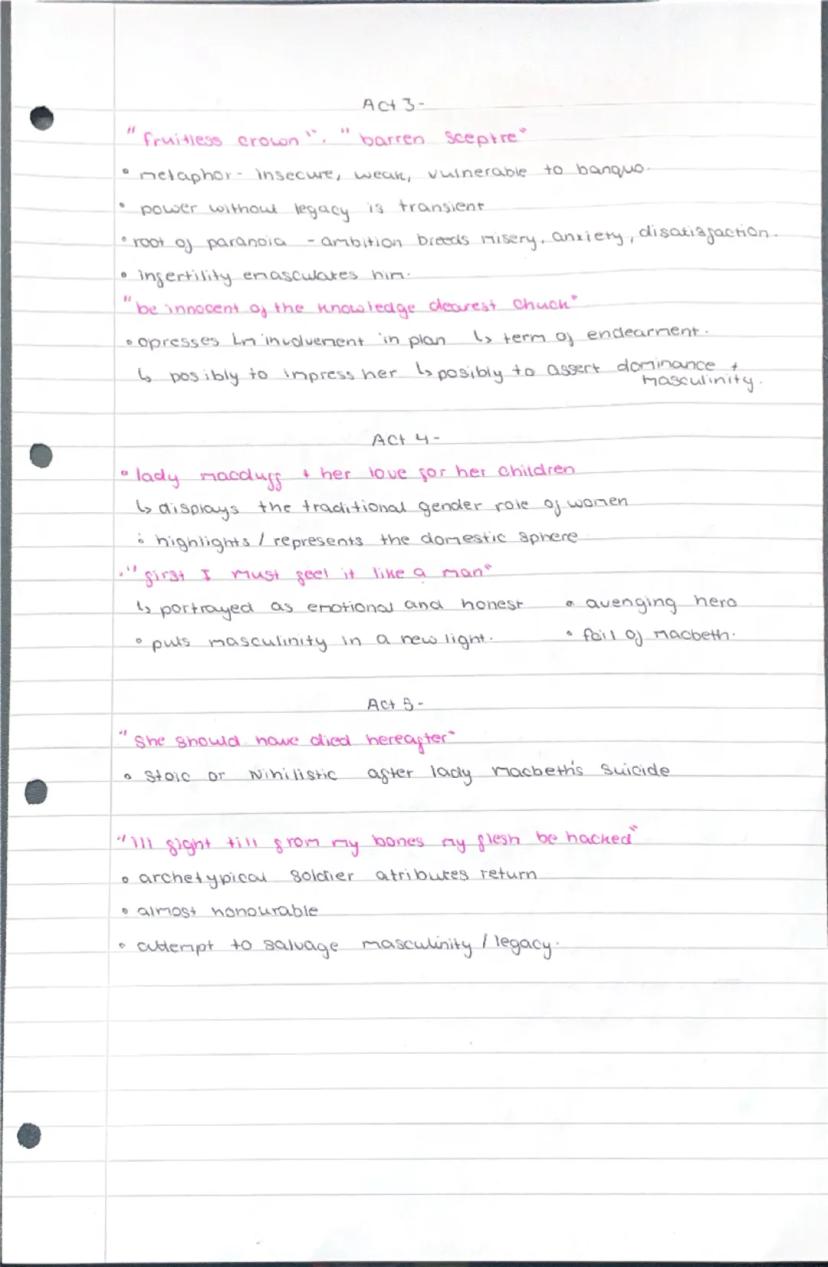 Act 3-
"fruitless crown". "barren sceptre"
• metaphor - insecure, weak, vulnerable to banquo.
• power without legacy is transient
• root of paranoia - ambition breeds misery, anxiety, disatisfaction.
• infertility emasculates him.
"be innocent of the knowledge dearest chuck"
• opresses Lm involvement in plan ↳ term of endearment.
↳ posibly to impress her ↳ posibly to assert dominance + masculinity.
Act 4-
• lady macduff + her love for her children
↳ displays the traditional gender role of women
• highlights / represents the domestic sphere
• "first I must feel it like a man"
↳ portrayed as emotional and honest • avenging hero
• puts masculinity in a new light. • foil of macbeth.
Act 5-
"She should have died hereafter"
• Stoic or Nihilistic after lady macbeth's suicide
"Ill fight till from my bones my flesh be hacked"
• archetypical soldier atributes return
• almost honourable
• attempt to salvage masculinity / legacy.